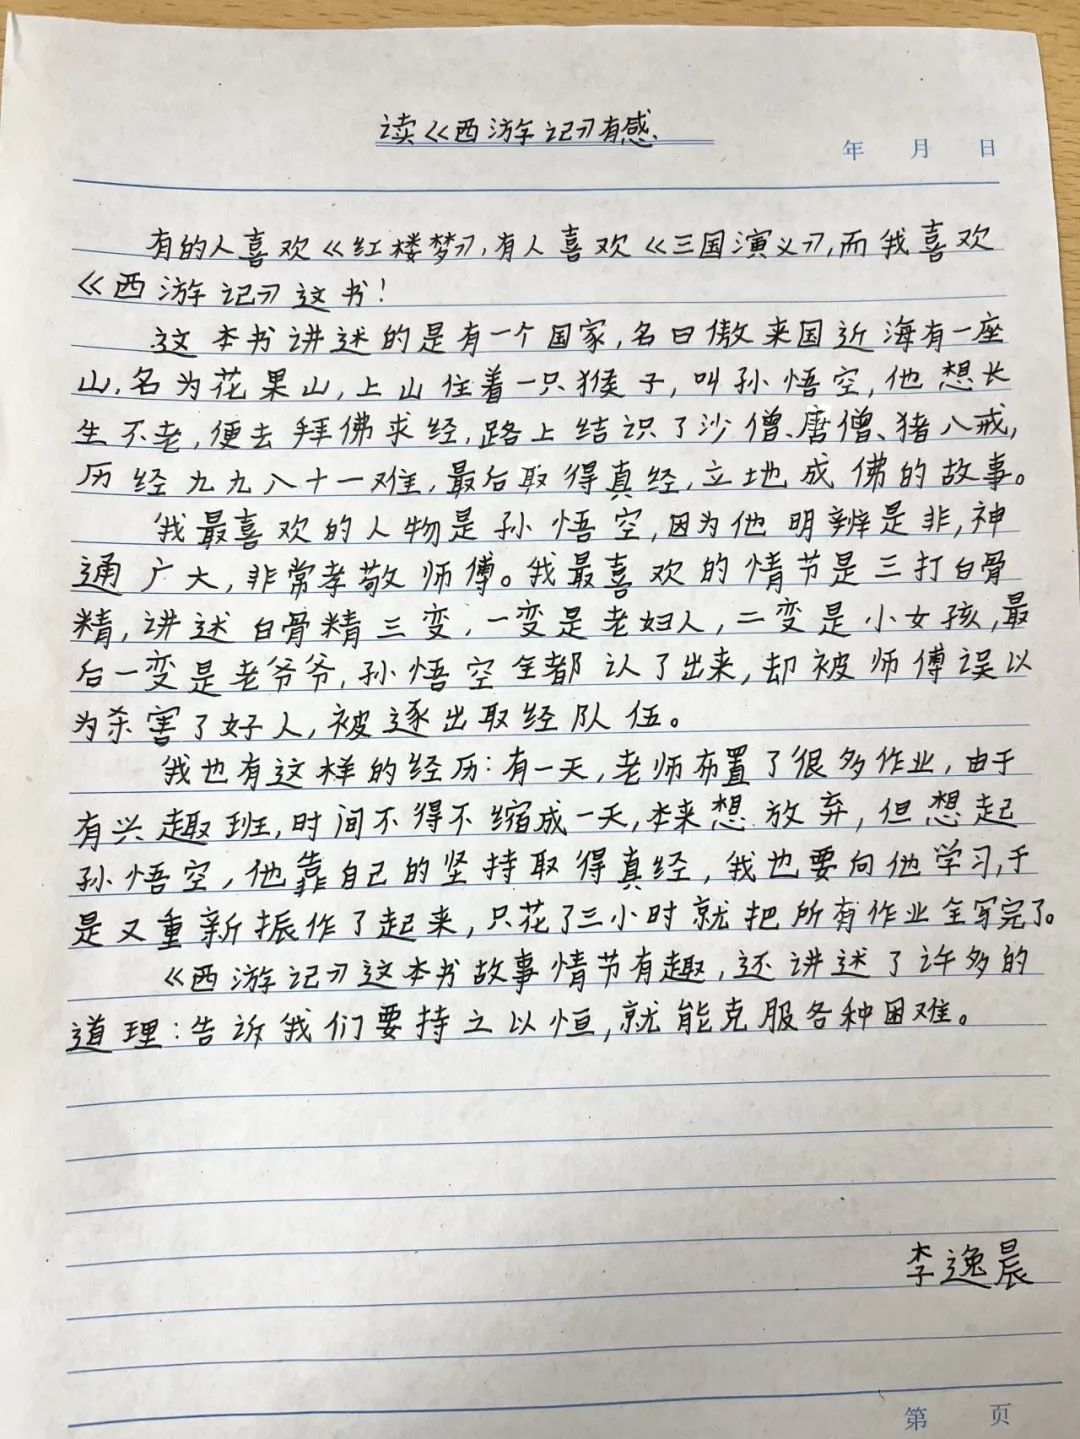 读《西游记》有感
年 月 日
有的人喜欢《红楼梦》,有人喜欢《三国演义》,而我喜欢
《西游记》这书!
这本书讲述的是有一个国家,名曰傲来国近海有一座
山,名为花果山,上山住着一只猴子,叫孙悟空,他想长
生不老,便去拜佛求经,路上结识了沙僧、唐僧、猪八戒,
历经九九八十一难,最后取得真经,立地成佛的故事。
我最喜欢的人物是孙悟空,因为他明辨是非,神
通广大,非常孝敬师傅。我最喜欢的情节是三打白骨
精,讲述白骨精三变,一变是老妇人,二变是小女孩,最
后一变是老爷爷,孙悟空全都认了出来,却被师傅误以
为杀害了好人,被逐出取经队伍。
我也有这样的经历:有一天,老师布置了很多作业,由于
有兴趣班,时间不得不缩成一天,本来想放弃,但想起
孙悟空,他靠自己的坚持取得真经,我也要向他学习,于
是又重新振作了起来,只花了三小时就把所有作业全写完了。
《西游记》这本书故事情节有趣,还讲述了许多的
道理:告诉我们要持之以恒,就能克服各种困难。
李逸晨
第 页